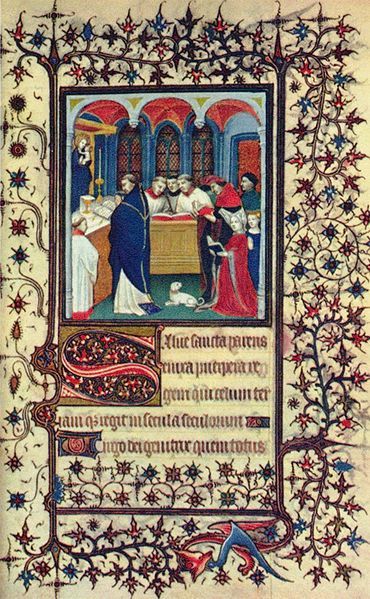 Salue sancta parens
enixa puerpera re
gem qui celum ter
ram q; regit in secula seculorum
Uirgo dei genitrix quem totus